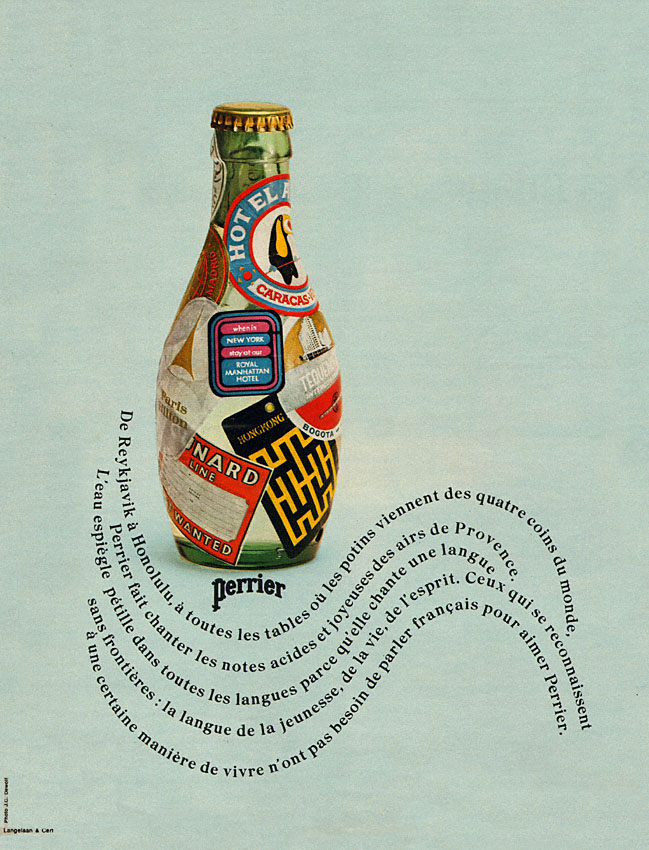 HOTEL A
CARACAS-V
MADRID
when in
NEW YORK
stay at our
ROYAL
MANHATTAN
HOTEL
TEGU
BOGOTA
Paris
ilton
HONGKONG
UNARD
LINE
WANTED
perrier
De Reykjavik à Honolulu, à toutes les tables où les potins viennent des quatre coins du monde,
Perrier fait chanter les notes acides et joyeuses des airs de Provence.
L'eau espiègle pétille dans toutes les langues parce qu'elle chante une langue
sans frontières : la langue de la jeunesse, de la vie, de l'esprit. Ceux qui se reconnaissent
à une certaine manière de vivre n'ont pas besoin de parler français pour aimer Perrier.
Photo J.C. Dewolf
Langelaan & Cerf